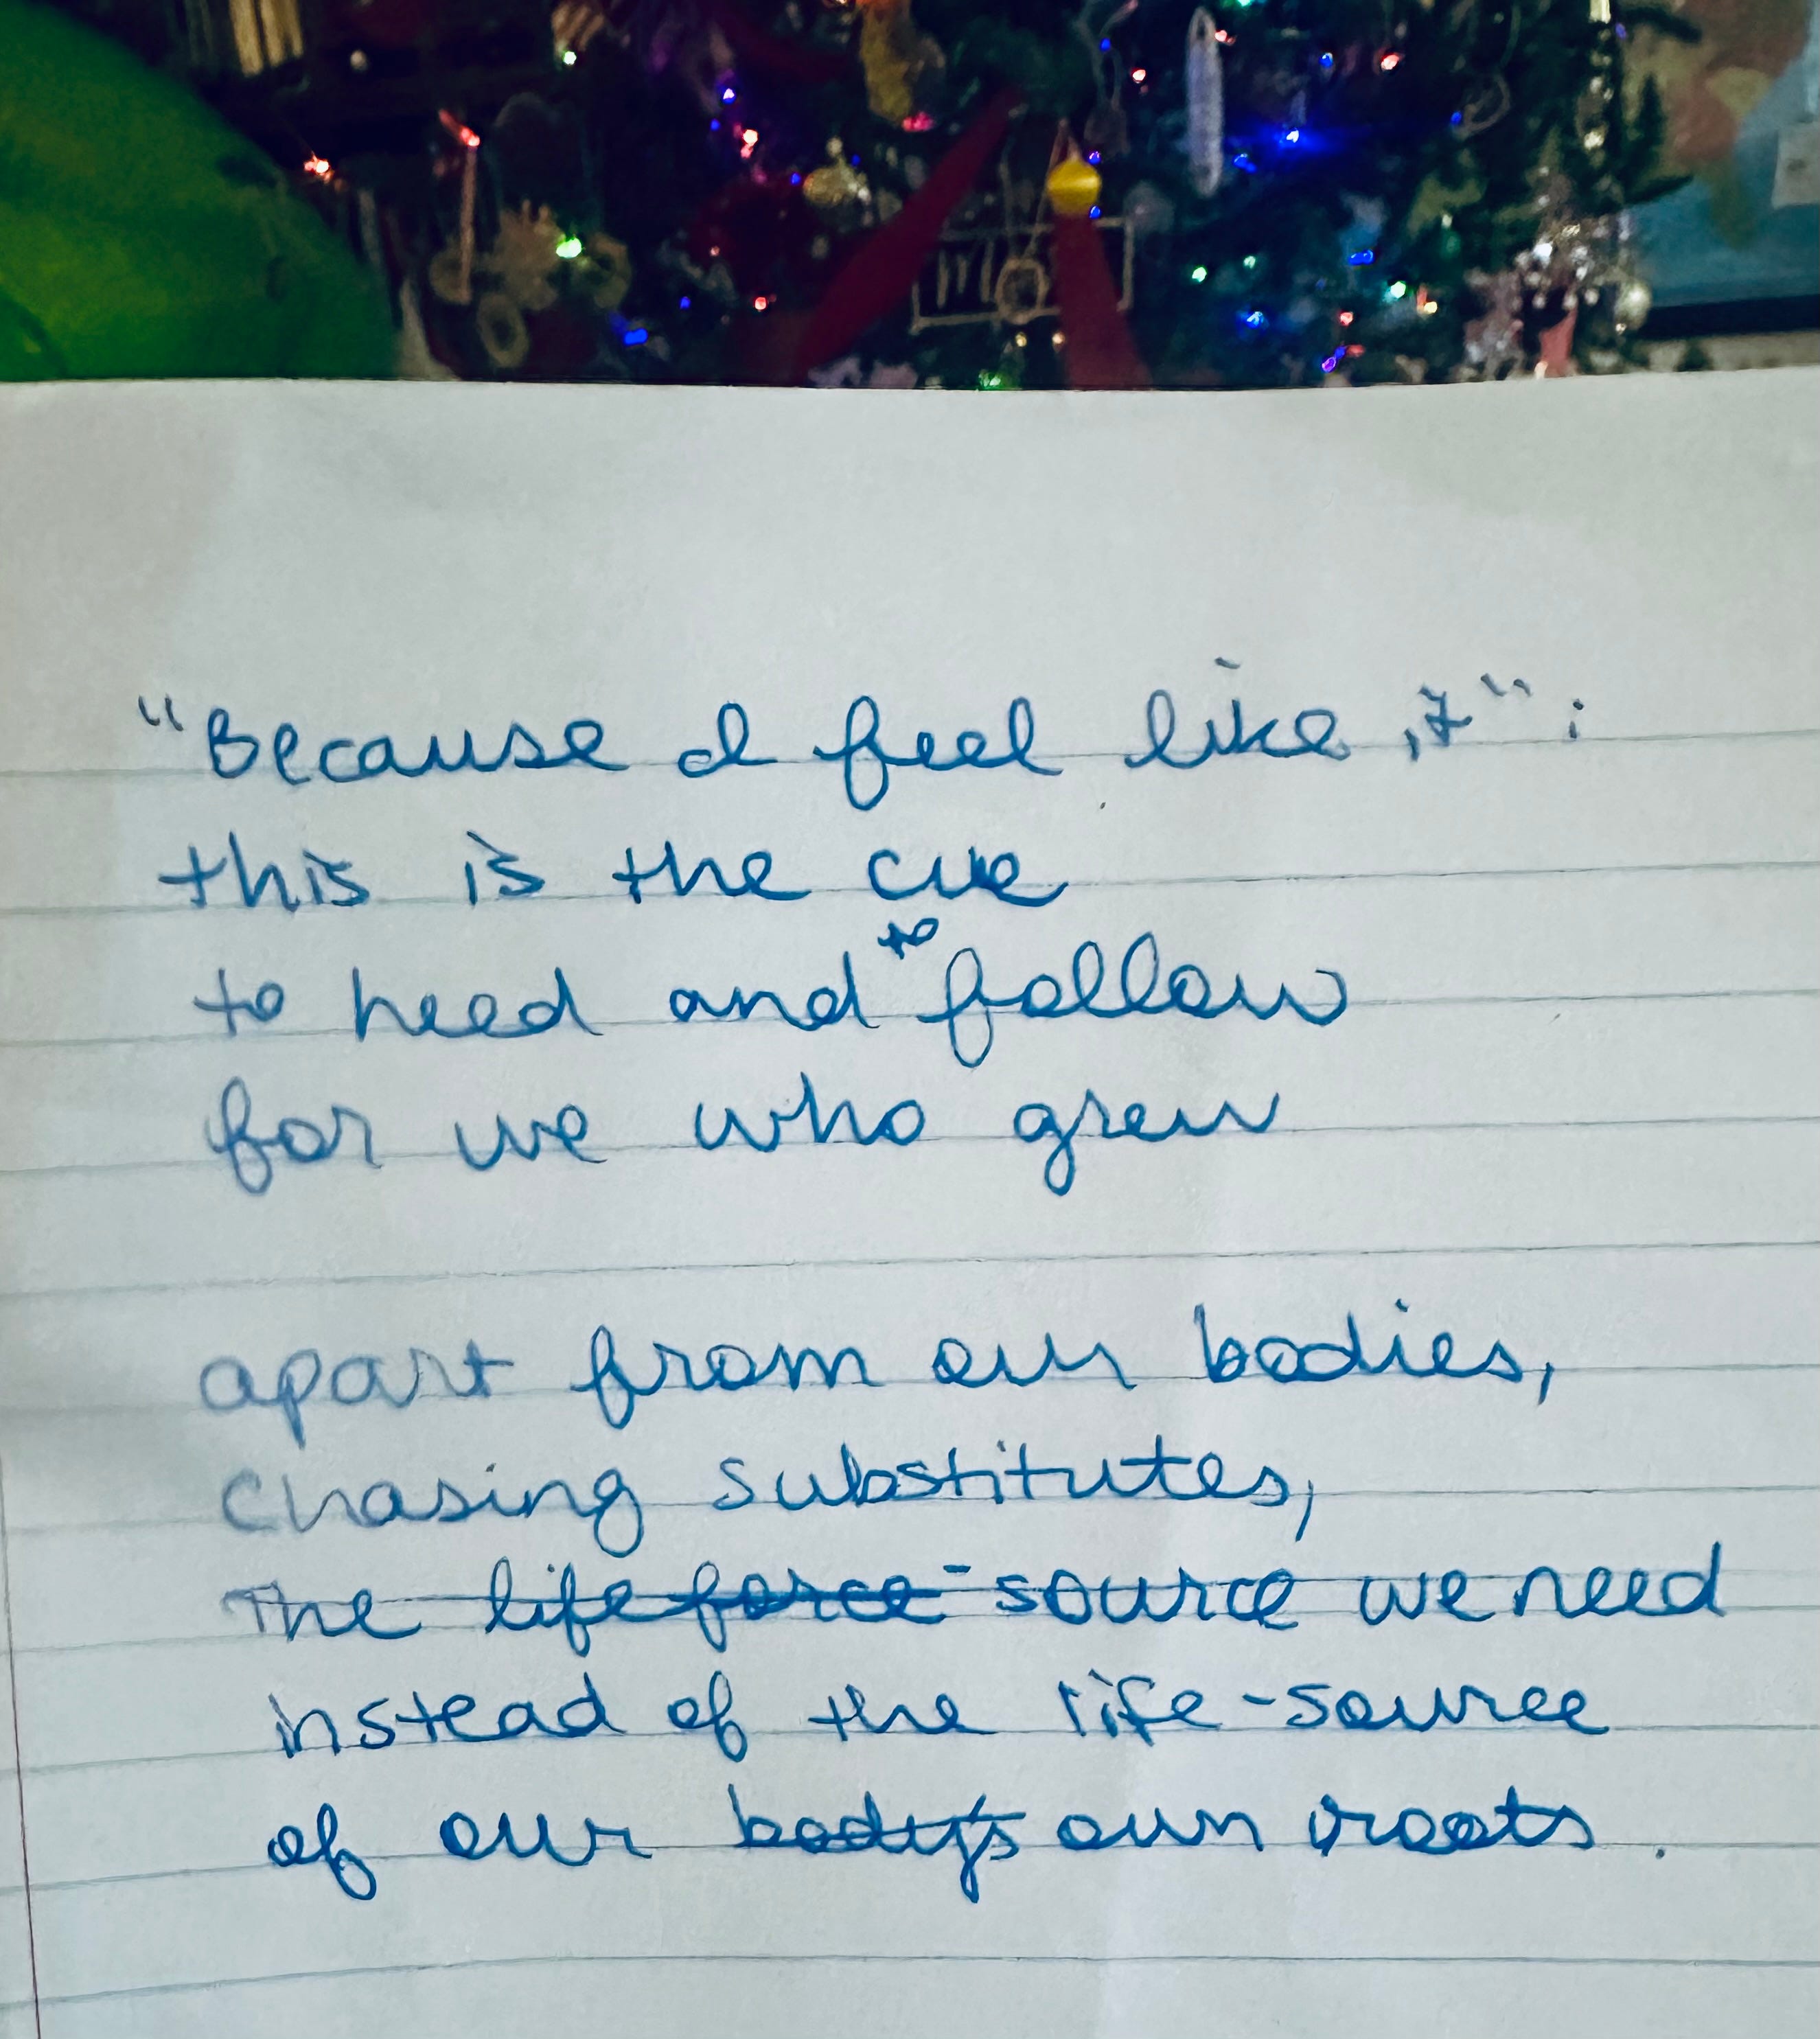 "Because I feel like it":
this is the cue
to heed and to follow
for we who grew
apart from our bodies,
chasing substitutes,
the life force - source we need
instead of the life-source
of our body's own roots.